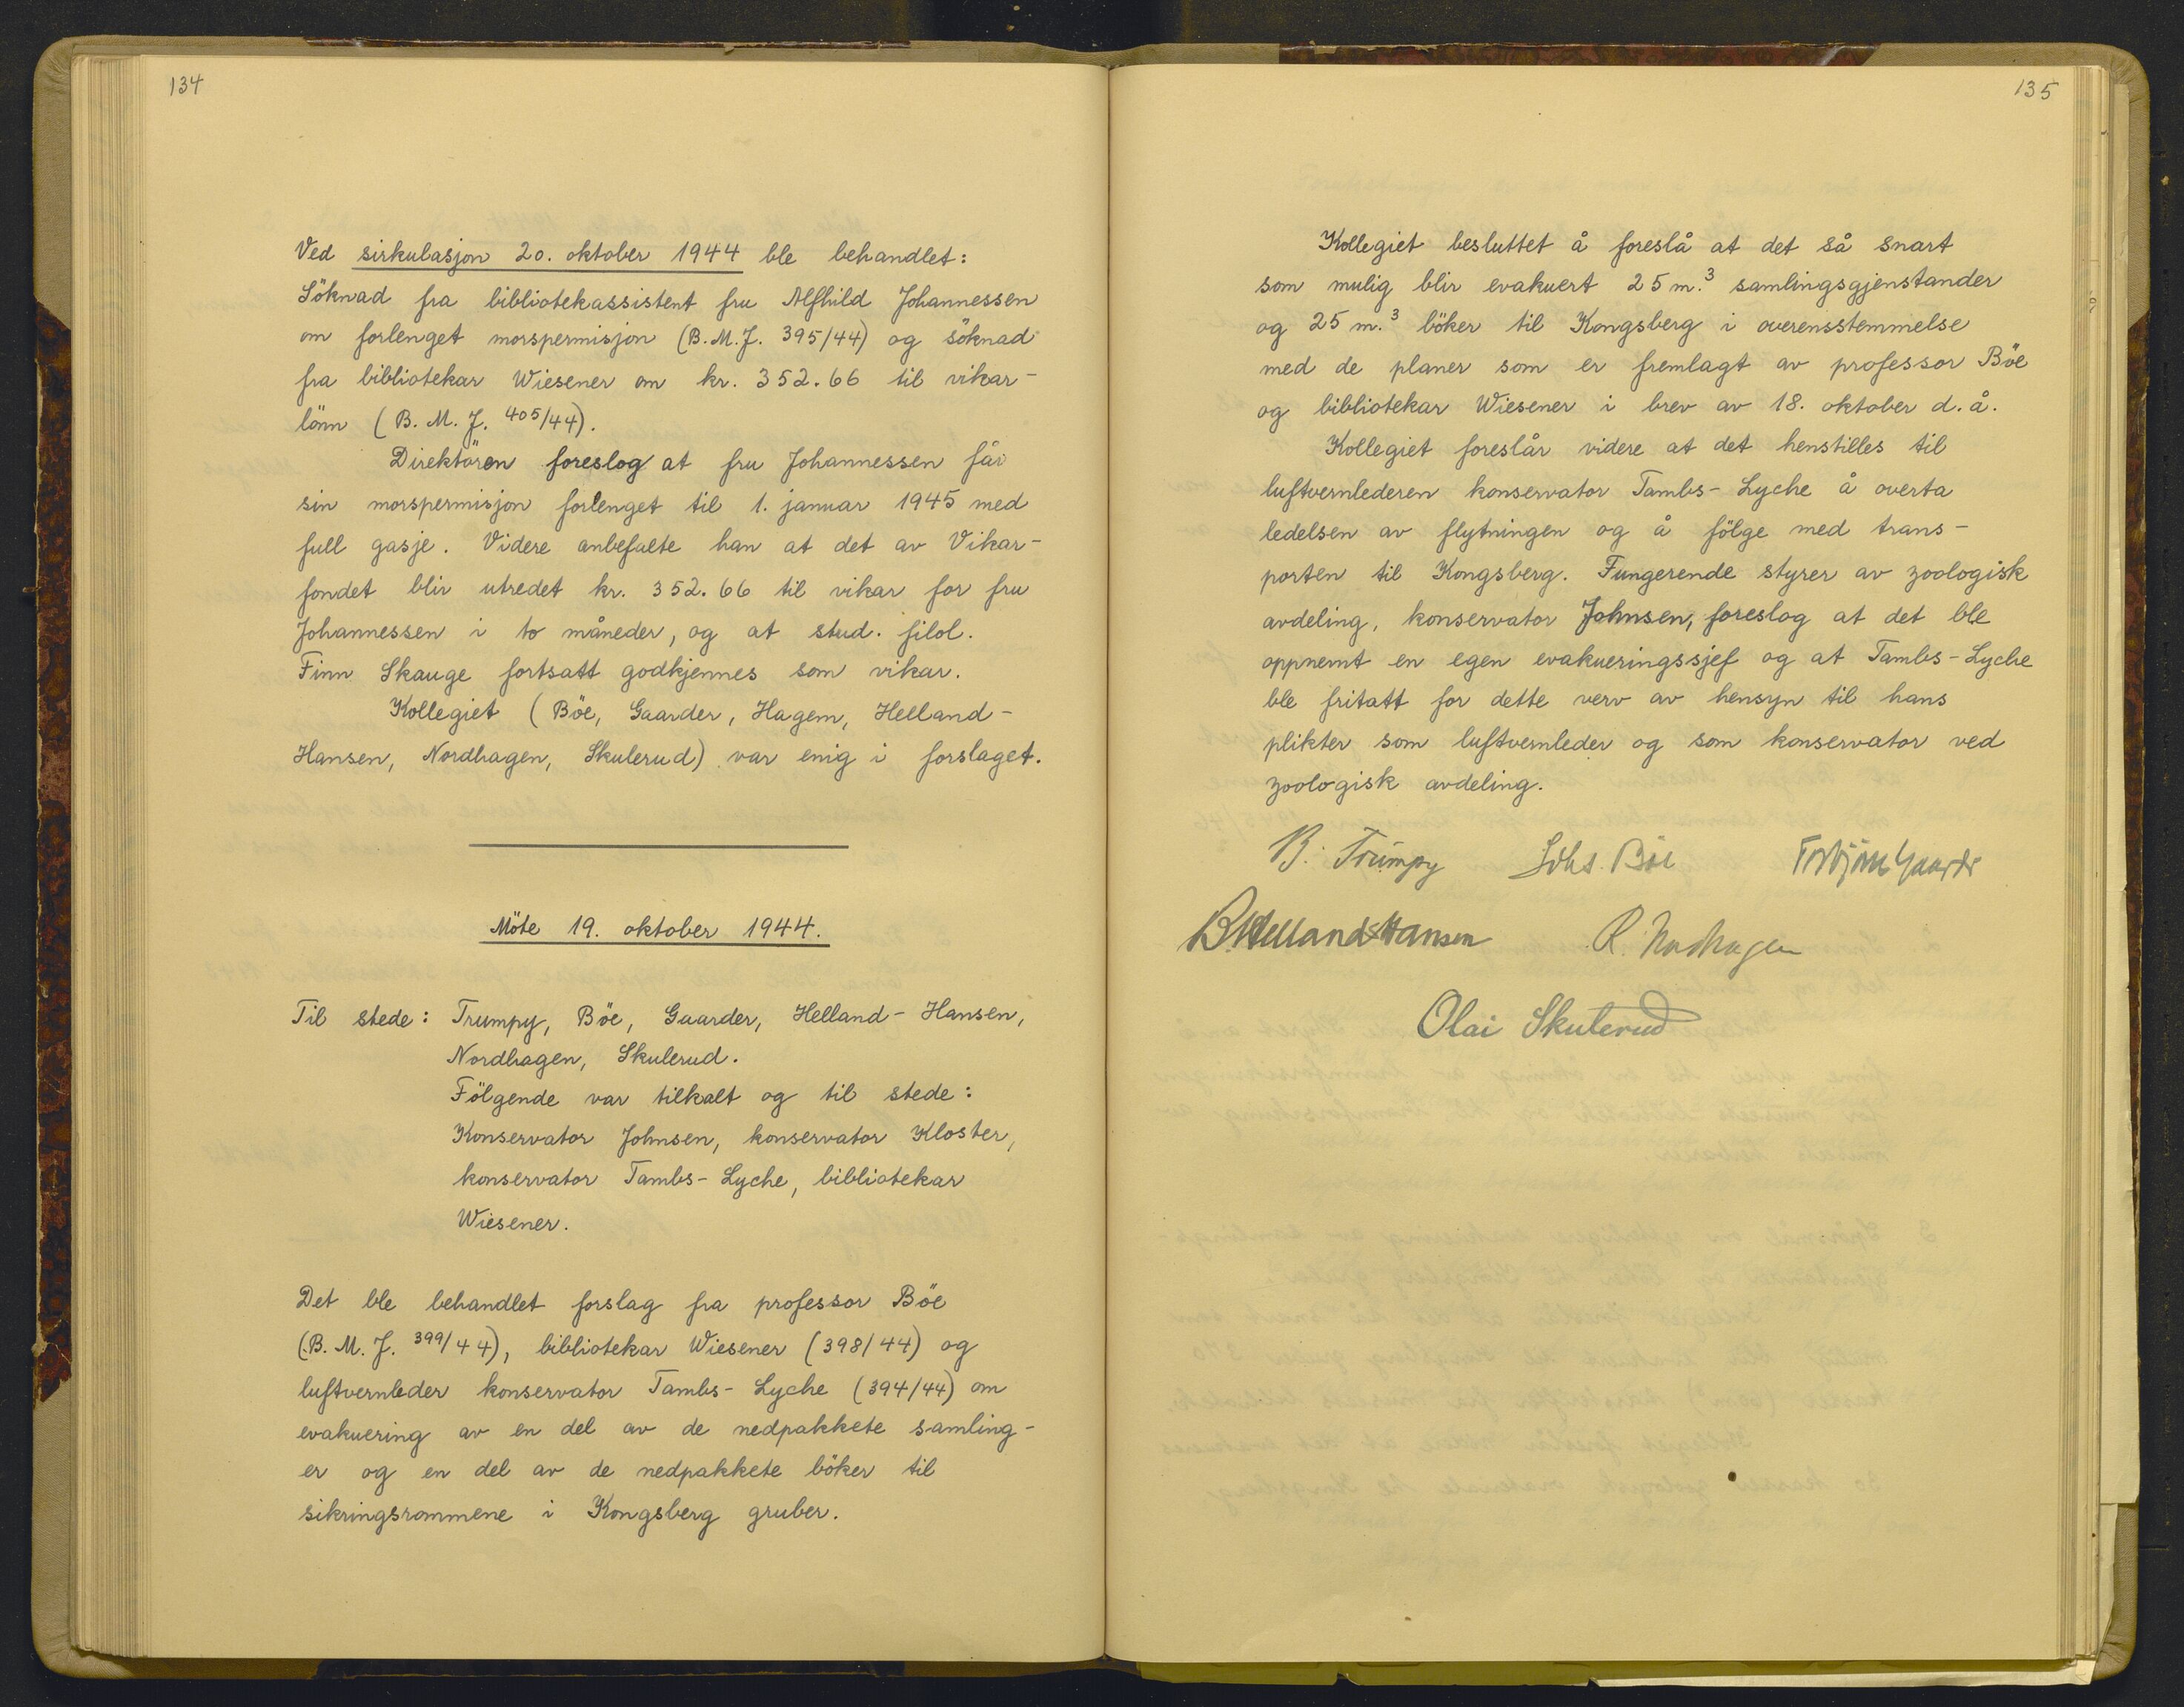 134
Ved sirkulasjon 20. oktober 1944 ble behandlet:
Söknad fra bibliotekassistent fru Alfhild Johannessen
om forlenget morspermisjon (B.M.J. 395/44) og söknad
fra bibliotekar Wiesener om kr. 352.66 til vikar-
lönn (B. M. J. 405/44).
Direktören foreslog at fru Johannessen får
sin morspermisjon forlenget til 1. januar 1945 med
full gasje. Videre anbefalte han at det av Vikar-
fondet blir utredet kr. 352.66 til vikar for fru
Johannessen i to måneder, og at stud. filol.
Finn Skauge fortsatt godkjennes som vikar.
Kollegiet (Böe, Gaarder, Hagem, Helland-
Hansen, Nordhagen, Skulerud) var enig i forslaget.
Möte 19. oktober 1944.
Til stede: Trumpy, Böe, Gaarder, Helland-Hansen,
Nordhagen, Skulerud.
Fölgende var tilkalt og til stede:
Konservator Johnsen, konservator Kloster,
konservator Tambs-Lyche, bibliotekar
Wiesener.
Det ble behandlet forslag fra professor Böe
(B. M. J. 399/44), bibliotekar Wiesener (398/44) og
luftvernleder konservator Tambs-Lyche (394/44) om
evakuering av en del av de nedpakkete samling-
er og en del av de nedpakkete böker til
sikringsrommene i Kongsberg gruber.
135
Kollegiet besluttet å foreslå at det så snart
som mulig blir evakuert 25 m.³ samlingsgjenstander
og 25 m.³ böker til Kongsberg i overensstemmelse
med de planer som er fremlagt av professor Böe
og bibliotekar Wiesener i brev av 18. oktober d.å.
Kollegiet foreslår videre at det henstilles til
luftvernlederen konservator Tambs-Lyche å overta
ledelsen av flytningen og å fölge med trans-
porten til Kongsberg. Fungerende styrer av zoologisk
avdeling, konservator Johnsen, foreslog at det ble
oppnemt en egen evakueringssjef og at Tambs-Lyche
ble fritatt for dette verv av hensyn til hans
plikter som luftvernleder og som konservator ved
zoologisk avdeling.
B. Trumpy Johs. Böe Torbjörn Gaarder
B. Helland-Hansen R. Nordhagen
Olai Skulerud